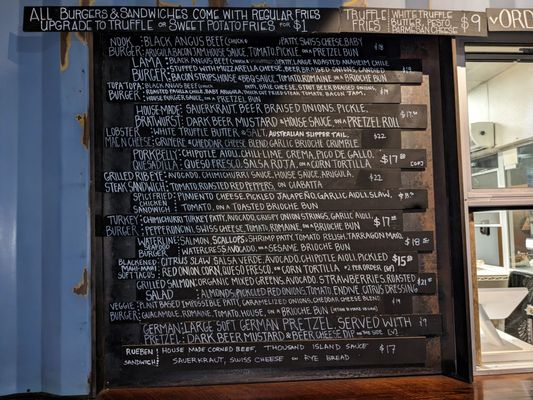 ALL BURGERS & SANDWICHES COME WITH REGULAR FRIES
UPGRADE TO TRUFFLE OR SWEET POTATO FRIES FOR $1
TRUFFLE WHITE TRUFFLE
FRIES BUTTER, PESTO, $9
PARMESAN CHEESE
ORD
NOOK BLACK ANGUS BEEF PATTY, SWISS CHEESE, BABY
BURGER: ARUGULA, BACON JAM, HOUSE SAUCE, TOMATO, PICKLE ON PRETZEL BUN
LAMA BLACK ANGUS BEEF PATTY, LARGE ROASTED ANAHEIM CHILE
BURGER: STUFFED WITH MOZZARELLA CHEESE, BEER BRAISED ONIONS, CANDIED
BACON STRIPS, HOUSE BBQ SAUCE, TOMATO, ROMAINE ON A BRIOCHE BUN
TOPA TOPA: BLACK ANGUS BEEF PATTY, BRIE CHEESE,
BURGER: TOMATO, BACON JAM, $19
HOUSE BURGER SAUCE, ON A PRETZEL BUN
HOUSE-MADE: SAUERKRAUT, BEER BRAISED ONIONS, PICKLE,
BRATWURST: DARK BEER MUSTARD & HOUSE SAUCE, ON A PRETZEL ROLL
LOBSTER WHITE TRUFFLE BUTTER & SALT, AUSTRALIAN SLIPPER TAIL, $22
MAC N CHEESE: GRUYERE & CHEDDAR CHEESE BLEND, GARLIC BRIOCHE CRUMBLE
PORK BELLY: CHIPOTLE AIOLI, CHILI-LIME CREMA, PICO DE GALLO, $17
QUESADILLA: QUESO FRESCO, SALSA ROJA ON CORN TORTILLA
GRILLED RIB EYE: AVOCADO, CHIMICHURRI SAUCE, HOUSE SAUCE, ARUGULA, $22
STEAK SANDWICH: TOMATO, ROASTED RED PEPPERS, ON CIABATTA
SPLIT FRIED: PIMIENTO CHEESE, PICKLED JALAPEÑO, GARLIC AIOLI, SLAW, $18
CHICKEN
SANDWICH TOMATO, ON A TOASTED BRIOCHE BUN
TURKEY: CHIMICHURRI TURKEY PATTY, AVOCADO, CRISPY ONION STRINGS, GARLIC AIOLI, $17
BURGER: PEPPERONCINI, SWISS CHEESE, TOMATO, ROMAINE, ON A BRIOCHE BUN
WATERLINE: SALMON, SCALLOPS & SHRIMP PATTY, TOMATO RELISH, TARRAGON MAYO, $18
SEAFOOD
BURGER WATERCRESS, AVOCADO, ON SESAME BRIOCHE BUN
BLACKENED CITRUS SLAW, SALSA VERDE, AVOCADO, CHIPOTLE AIOLI, PICKLED $15
MAHI-MAHI
SOFT TACOS: RED ONION, CORN, QUESO FRESCO, ON CORN TORTILLA *2 PER ORDER (GF)
GRILLED SALMON: ORGANIC MIXED GREENS, AVOCADO, STRAWBERRIES, ROASTED $21
SALAD ALMONDS, PICKLED RED ONIONS, TOMATO, ENDIVE, CITRUS DRESSING
VEGGIE PLANT BASED IMPOSSIBLE PATTY, CARAMELIZED ONIONS, CHEDDAR CHEESE BLEND, $19
BURGER: GUACAMOLE, ROMAINE, TOMATO, HOUSE, ON A BRIOCHE BUN
GERMAN: LARGE SOFT GERMAN PRETZEL, SERVED WITH $9
PRETZEL: DARK BEER MUSTARD & BEER CHEESE DIP ON THE SIDE (V)
RUEBEN HOUSE MADE CORNED BEEF, THOUSAND ISLAND SAUCE $17
SANDWICH: SAUERKRAUT, SWISS CHEESE ON RYE BREAD